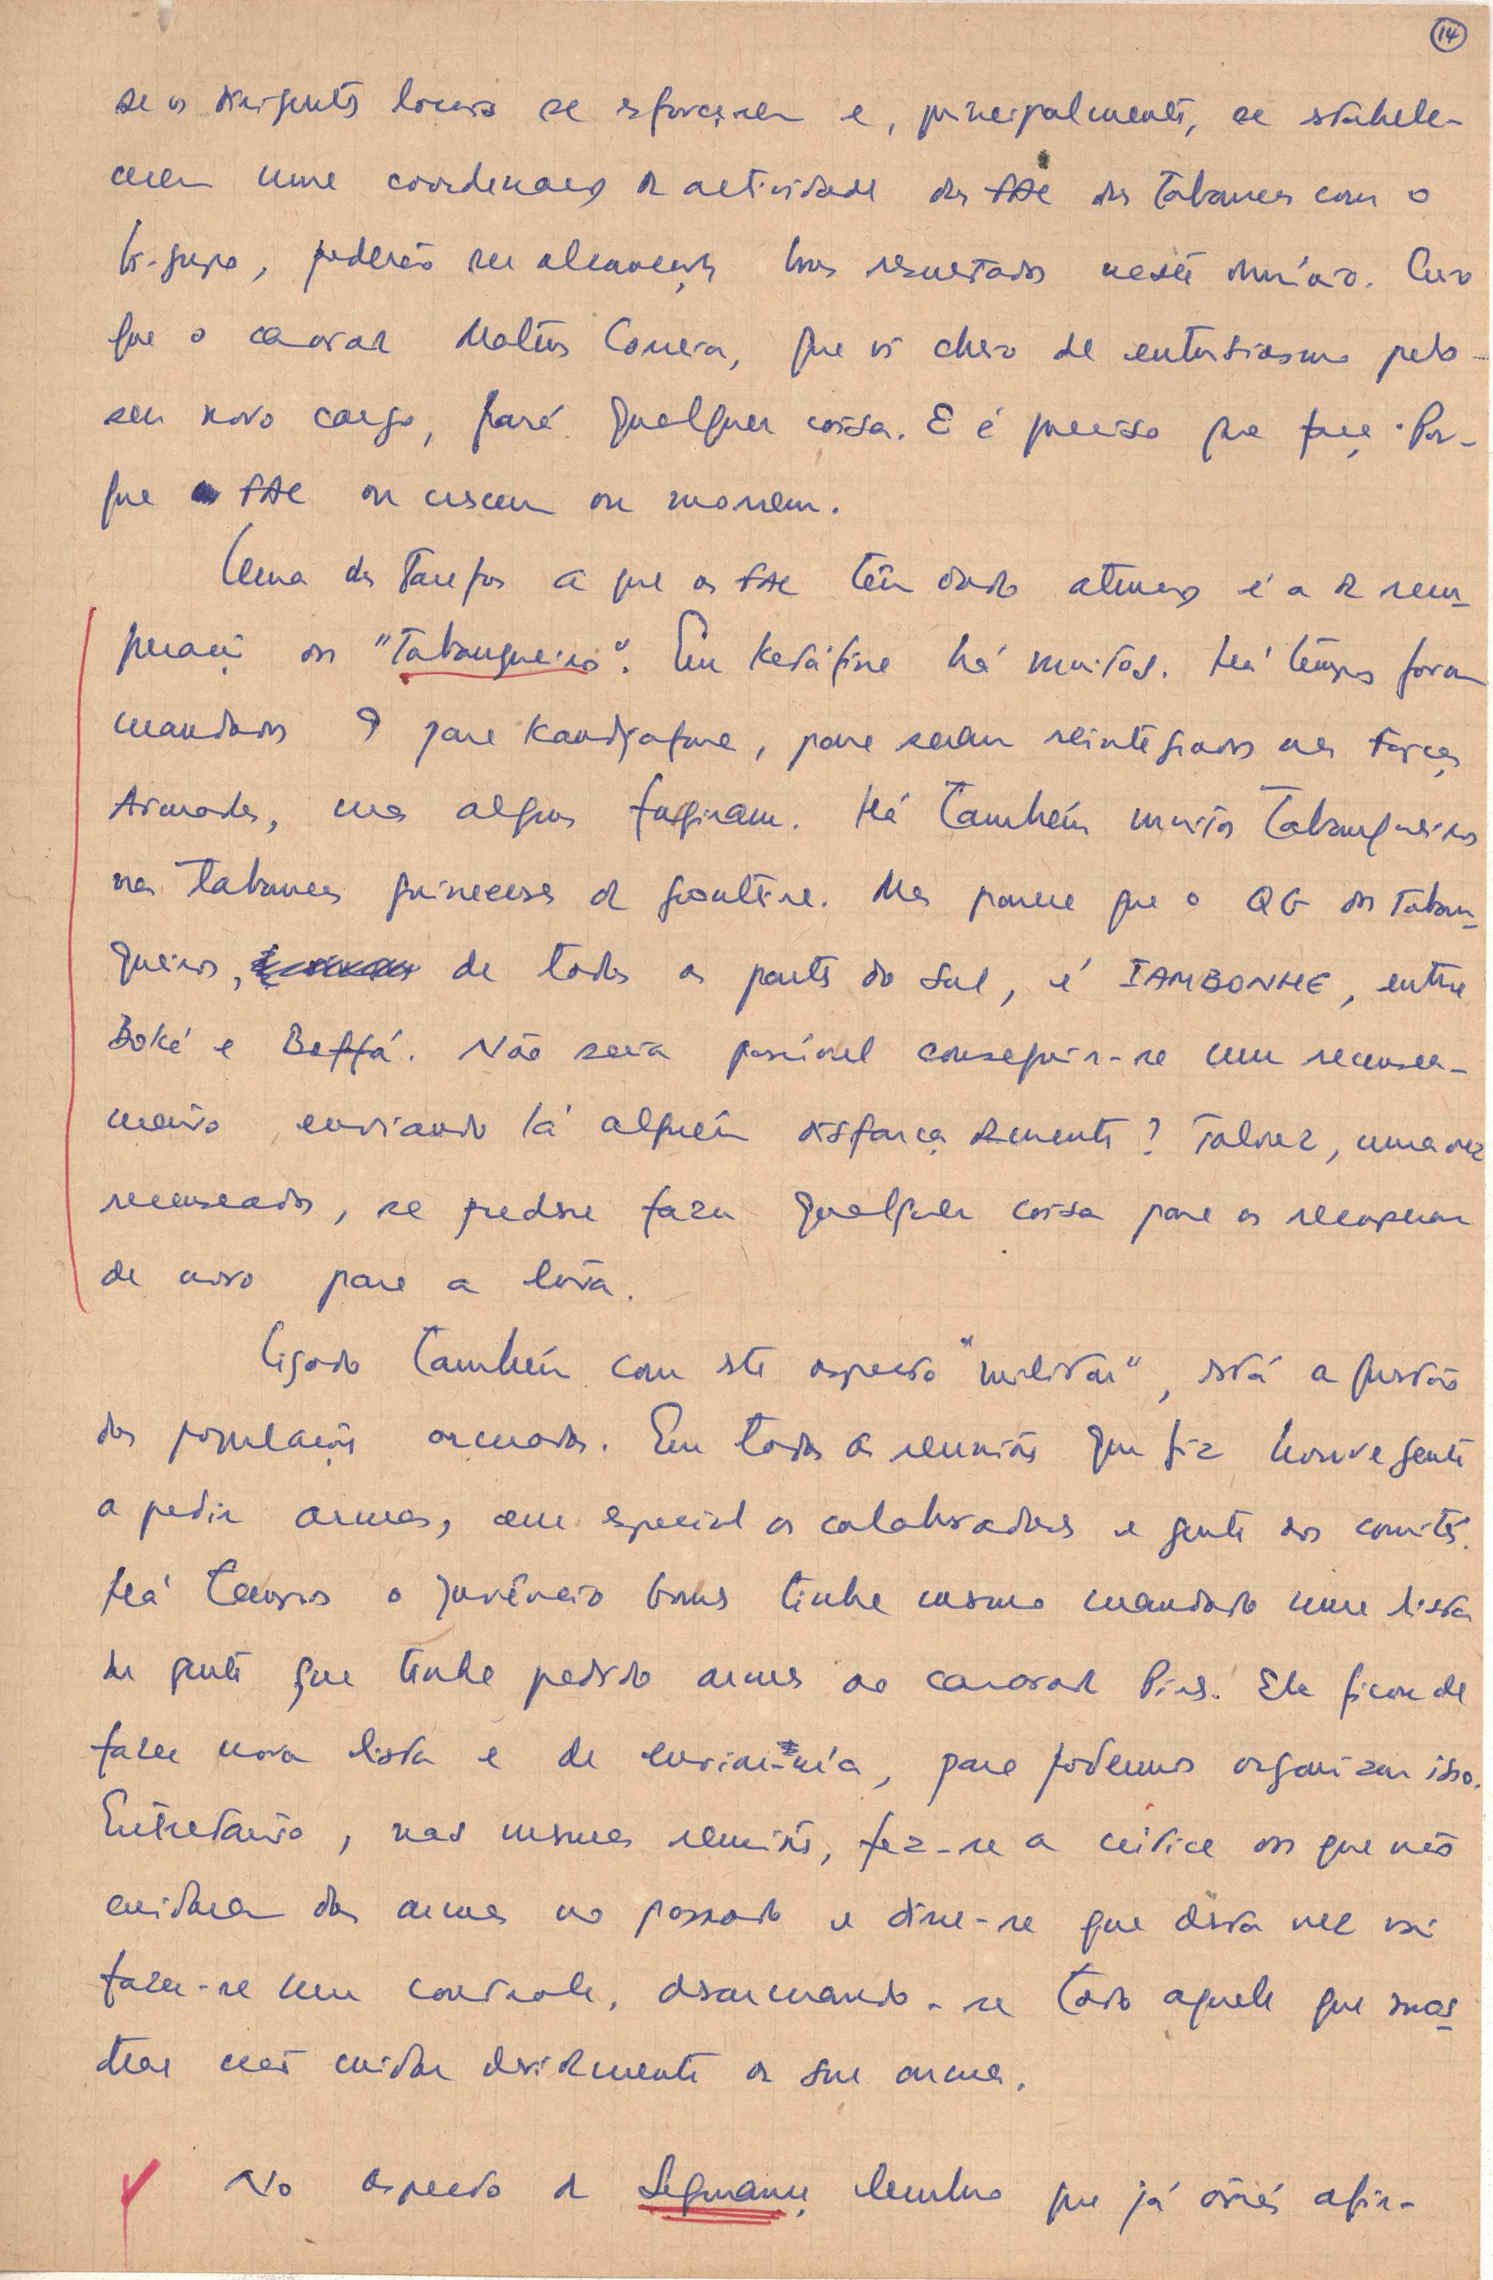 14
se os dirigentes locais se esforçarem e, principalmente, se estabele-
cerem uma coordenação da actividade das FAL das Tabancas com o
bi-grupo, poderão ser alcançados bons resultados neste domínio. Creio
que o camarada Mateus Correia, que vi cheio de entusiasmo pelo
seu novo cargo, fará qualquer coisa. E é preciso que faça. Por-
que as FAL ou crescem ou morrem.
Uma das tarefas a que as FAL têm dado atenção é a de recu-
peração dos "Tabanqueiros". Em Kefáfine há muitos. Há tempos foram
mandados 9 para Kandjafara, para serem reintegrados nas Forças
Armadas, mas alguns fugiram. Há também muitos Tabanqueiros
nas tabancas guineenses de fronteira. Mas parece que o QG dos Taban-
queiros, de todas as partes do Sul, é IAMBONHE, entre
Boké e Boffá. Não seria possível conseguir-se um recensea-
mento enviando lá alguém disfarçadamente? Talvez, uma vez
recenseados, se pudesse fazer qualquer coisa para os recuperar
de novo para a luta.
Ligado também com este aspecto "militar", está a questão
das populações armadas. Em todas as reuniões que fiz houve gente
a pedir armas, em especial os colaboradores e gente dos comités.
Há tempos o Juvêncio Gomes tinha mesmo mandado uma lista
da gente que tinha pedido armas ao camarada Pires. Ele ficou de
fazer nova lista e de enviar-ma, para podermos organizar isso.
Entretanto, nas mesmas reuniões, fez-se a crítica dos que não
cuidaram das armas no passado e disse-se que desta vez vai
fazer-se um controle, desarmando-se todo aquele que mos-
trar não cuidar devidamente da sua arma.
No aspecto da Segurança lembro que já atrás afir-